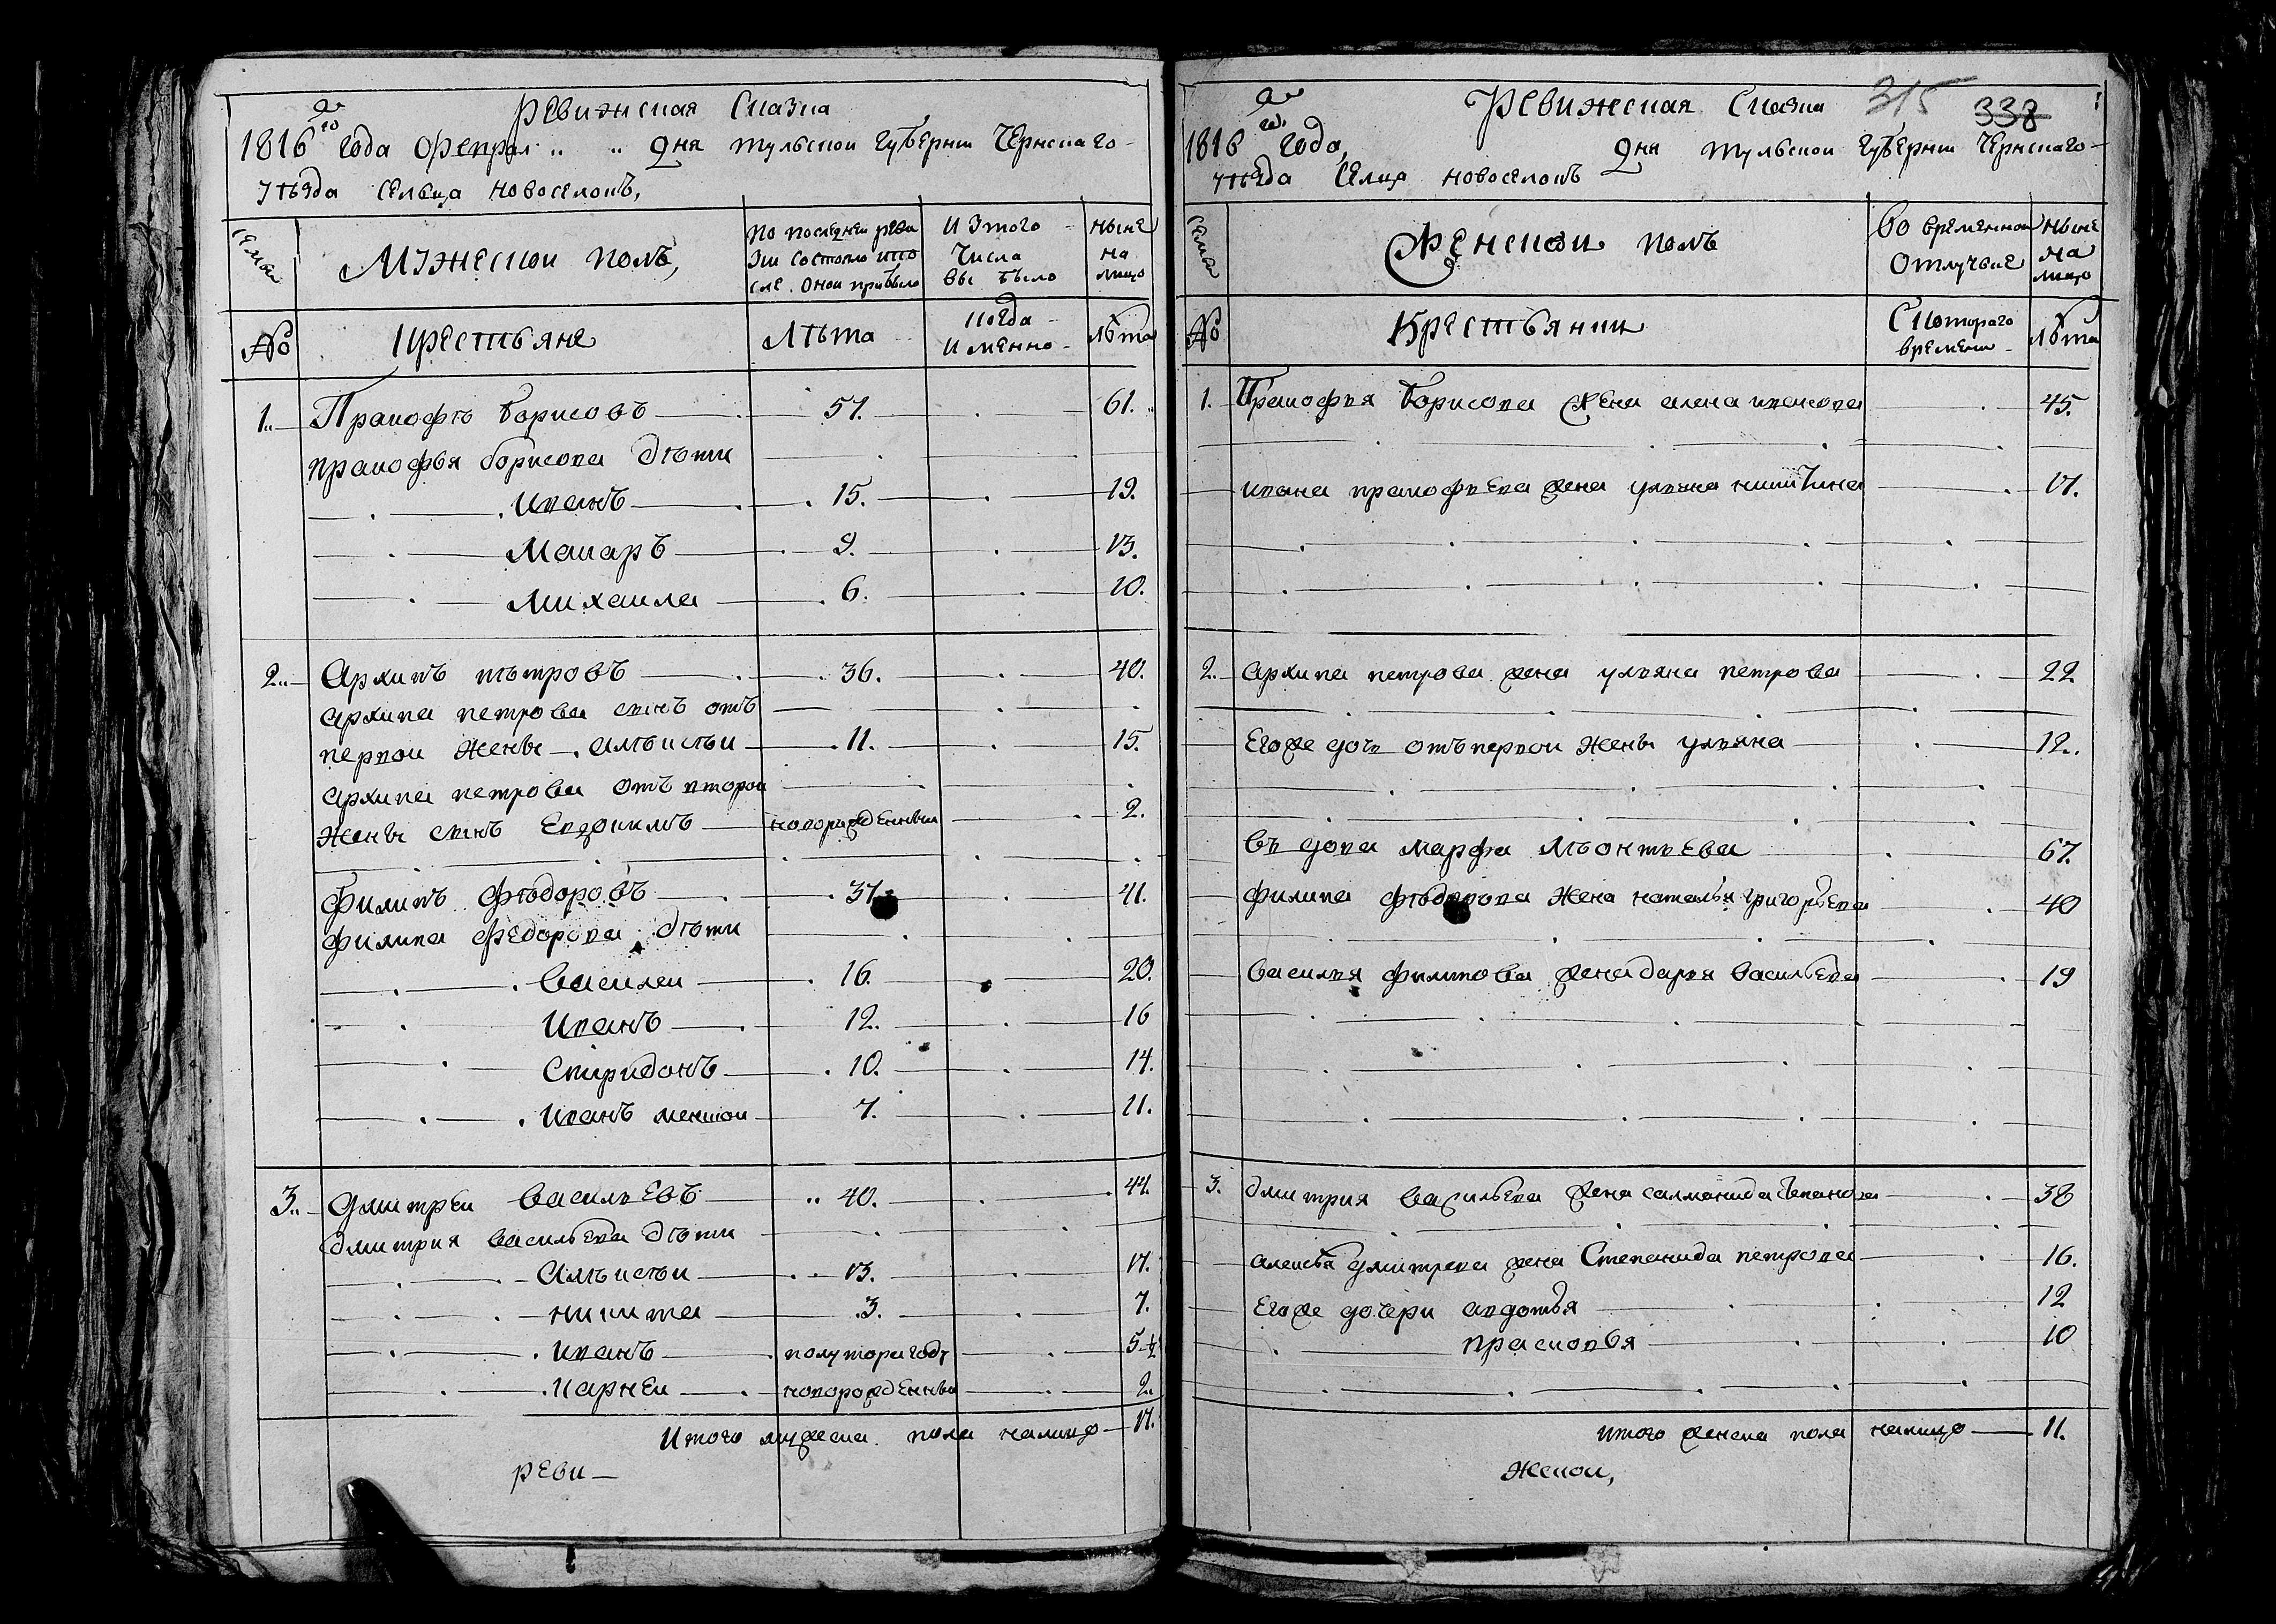 Ревижская Сказка
1816го года Феврал " " дня тульскои губернии Чернскаго
Уѣзда Сельца Новоселокъ,
Семьи
Мужескои полъ,
По последнеи реви
зіи состояло и по
сле онои прибыло
Изтого
Числа
выбыло
Ныне
на
лицо
№
Крестьяне
Лѣта
Когда
Именно
Лѣта
1. Пракофѣ Борисовъ 57. 61.
Пракофья Борисова дѣти
Иванъ 15. 19.
Макаръ 9. 13.
Михаила 6. 10.
2. Архипъ пѣтровъ 36. 40.
Архипа петрова сынъ отъ
первои жены Алѣксѣи 11. 15.
Архипа петрова отъ второи
жены сынъ Евдокимъ новорожденныи 2.
Филипъ Фѣодоровъ 37. 41.
Филипа Федорова дѣти
Василеи 16. 20.
Иванъ 12. 16
Спиридонъ 10. 14.
Иванъ меншои 7. 11.
3. Дмитреи Васильевъ 40. 44.
Дмитрия васильева дѣти
Алѣксѣи 13. 17.
Никита 3. 7.
Иванъ полутора году 5½
Карнеи новорожденныи 2.
Итого мужеска пола налицо 17.
реви
315 338
Ревижская Сказка
1816 года, дня тульскои губернии Чернскаго
Уѣзда Селца Новоселокъ
Семьи
Женскои полъ
Во временнои
Отлучке
Ныне
на
лицо
№
Крестьянки
С котораго
времени
Лѣта
1. Пракофья Борисова жена алена иванова 45.
ивана пракофьева жена ульяна никитина 17.
2. Архипа петрова жена ульяна петрова 22
Егоже дочь отъ первои жены ульяна 12.
Въдова марфа Лѣонтьева 67.
Филипа Фѣодорова жена наталья григорьева 40
Василья филипова жена дарья васильева 19
3. Дмитрия васильева жена саломанида степанова 38
алексѣя дмитрева жена Степанида петрова 16.
Егоже дочери авдотья 12
прасковья 10
итого женска пола налицо 11.
жскои,